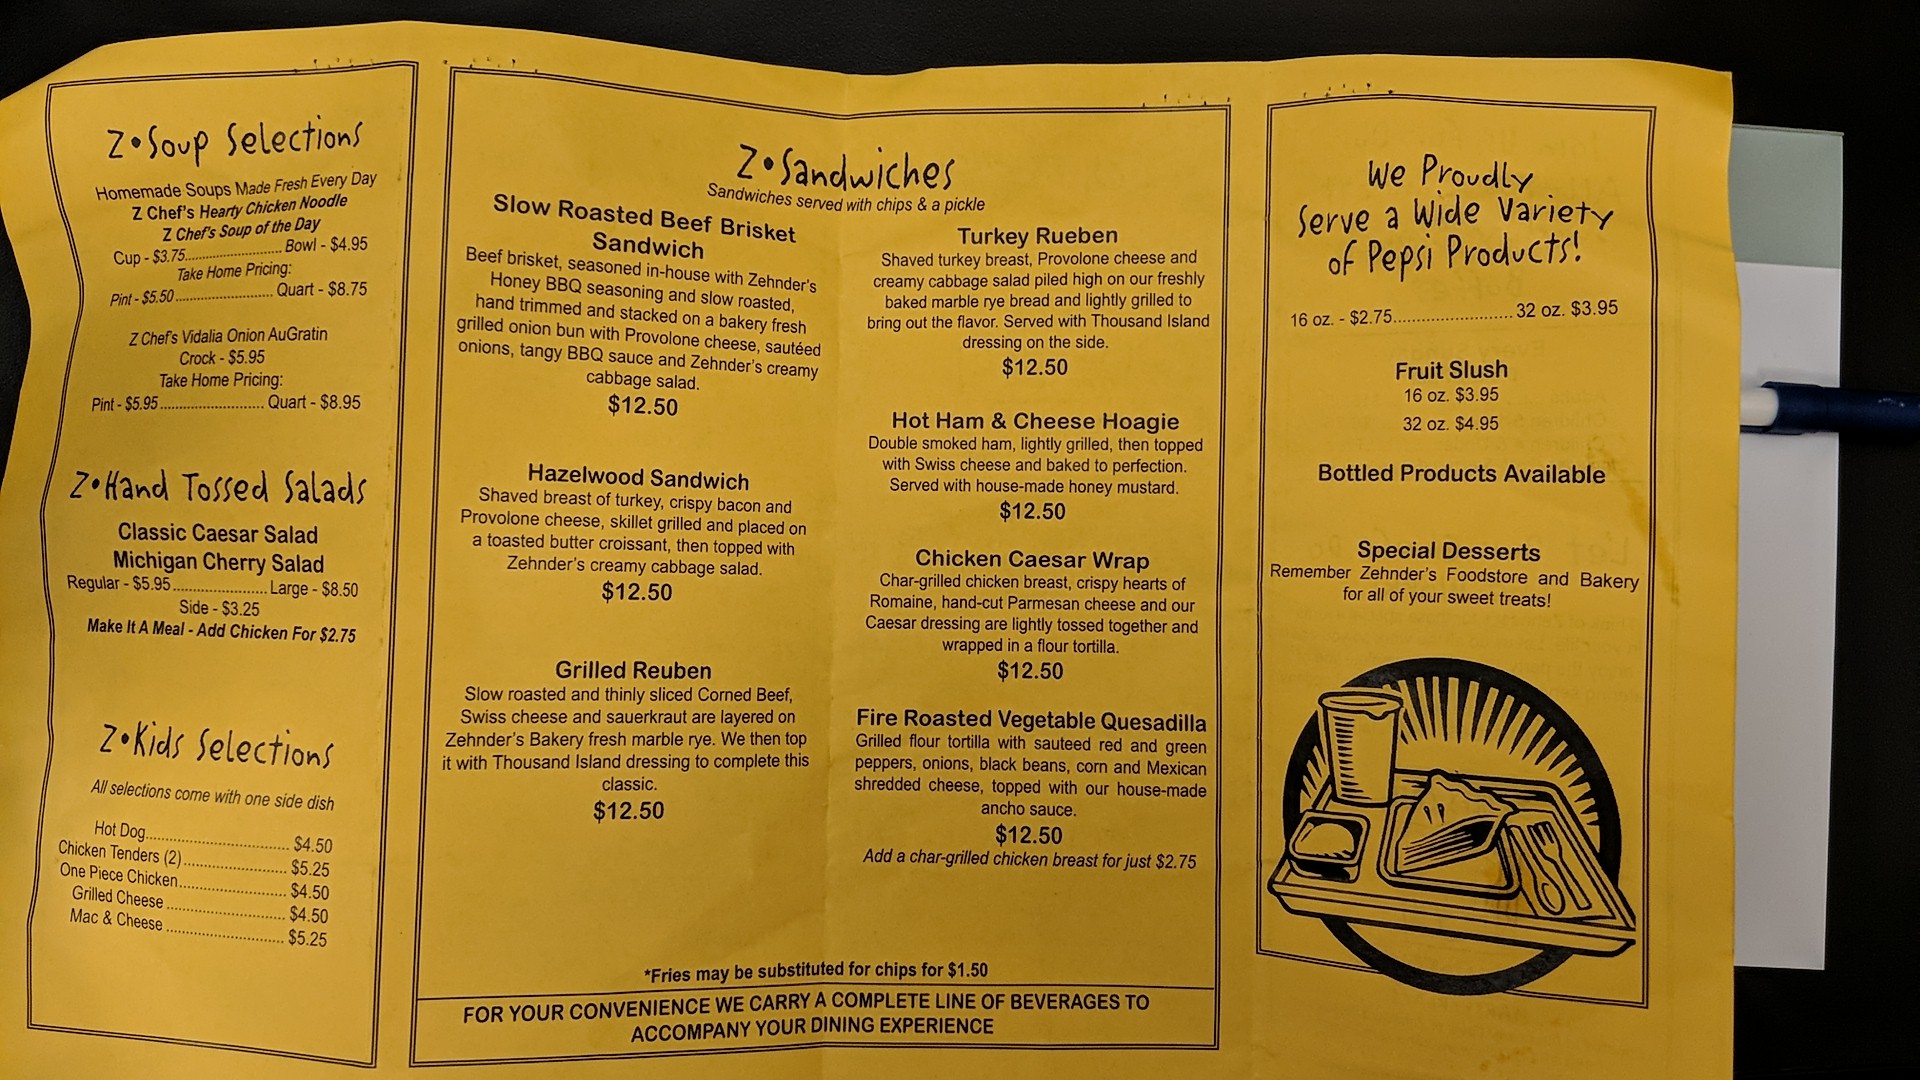 Z•Soup Selections
Homemade Soups Made Fresh Every Day
Z Chef's Hearty Chicken Noodle
Z Chef's Soup of the Day
Cup - $3.75............................ Bowl - $4.95
Take Home Pricing:
Pint - $5.50............................ Quart - $8.75
Z Chef's Vidalia Onion AuGratin
Crock - $5.95
Take Home Pricing:
Pint - $5.95............................ Quart - $8.95
Z•Hand Tossed Salads
Classic Caesar Salad
Michigan Cherry Salad
Regular - $5.95......................... Large - $8.50
Side - $3.25
Make It A Meal - Add Chicken For $2.75
Z•Kids Selections
All selections come with one side dish
Hot Dog..................................... $4.50
Chicken Tenders (2)........................... $5.25
One Piece Chicken............................ $4.50
Grilled Cheese ............................... $4.50
Mac & Cheese ............................... $5.25
Z•Sandwiches
Sandwiches served with chips & a pickle
Slow Roasted Beef Brisket
Sandwich
Beef brisket, seasoned in-house with Zehnder's
Honey BBQ seasoning and slow roasted,
hand trimmed and stacked on a bakery fresh
grilled onion bun with Provolone cheese, sautéed
onions, tangy BBQ sauce and Zehnder's creamy
cabbage salad.
$12.50
Hazelwood Sandwich
Shaved breast of turkey, crispy bacon and
Provolone cheese, skillet grilled and placed on
a toasted butter croissant, then topped with
Zehnder's creamy cabbage salad.
$12.50
Grilled Reuben
Slow roasted and thinly sliced Corned Beef,
Swiss cheese and sauerkraut are layered on
Zehnder's Bakery fresh marble rye. We then top
it with Thousand Island dressing to complete this
classic.
$12.50
Turkey Rueben
Shaved turkey breast, Provolone cheese and
creamy cabbage salad piled high on our freshly
baked marble rye bread and lightly grilled to
bring out the flavor. Served with Thousand Island
dressing on the side.
$12.50
Hot Ham & Cheese Hoagie
Double smoked ham, lightly grilled, then topped
with Swiss cheese and baked to perfection.
Served with house-made honey mustard.
$12.50
Chicken Caesar Wrap
Char-grilled chicken breast, crispy hearts of
Romaine, hand-cut Parmesan cheese and our
Caesar dressing are lightly tossed together and
wrapped in a flour tortilla.
$12.50
Fire Roasted Vegetable Quesadilla
Grilled flour tortilla with sauteed red and green
peppers, onions, black beans, corn and Mexican
shredded cheese, topped with our house-made
ancho sauce.
$12.50
Add a char-grilled chicken breast for just $2.75
*Fries may be substituted for chips for $1.50
FOR YOUR CONVENIENCE WE CARRY A COMPLETE LINE OF BEVERAGES TO
ACCOMPANY YOUR DINING EXPERIENCE
We Proudly
Serve a Wide Variety
of Pepsi Products!
16 oz. - $2.75............................ 32 oz. $3.95
Fruit Slush
16 oz. $3.95
32 oz. $4.95
Bottled Products Available
Special Desserts
Remember Zehnder's Foodstore and Bakery
for all of your sweet treats!